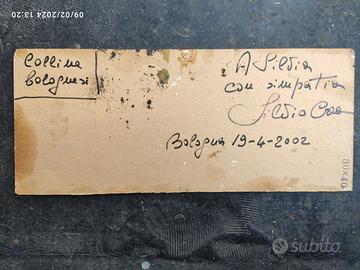 09/02/2024 13:20
Collina
bolognesi
A Silvia
con simpatia
Silvio
Bologna 19-4-2002
30x40
subito